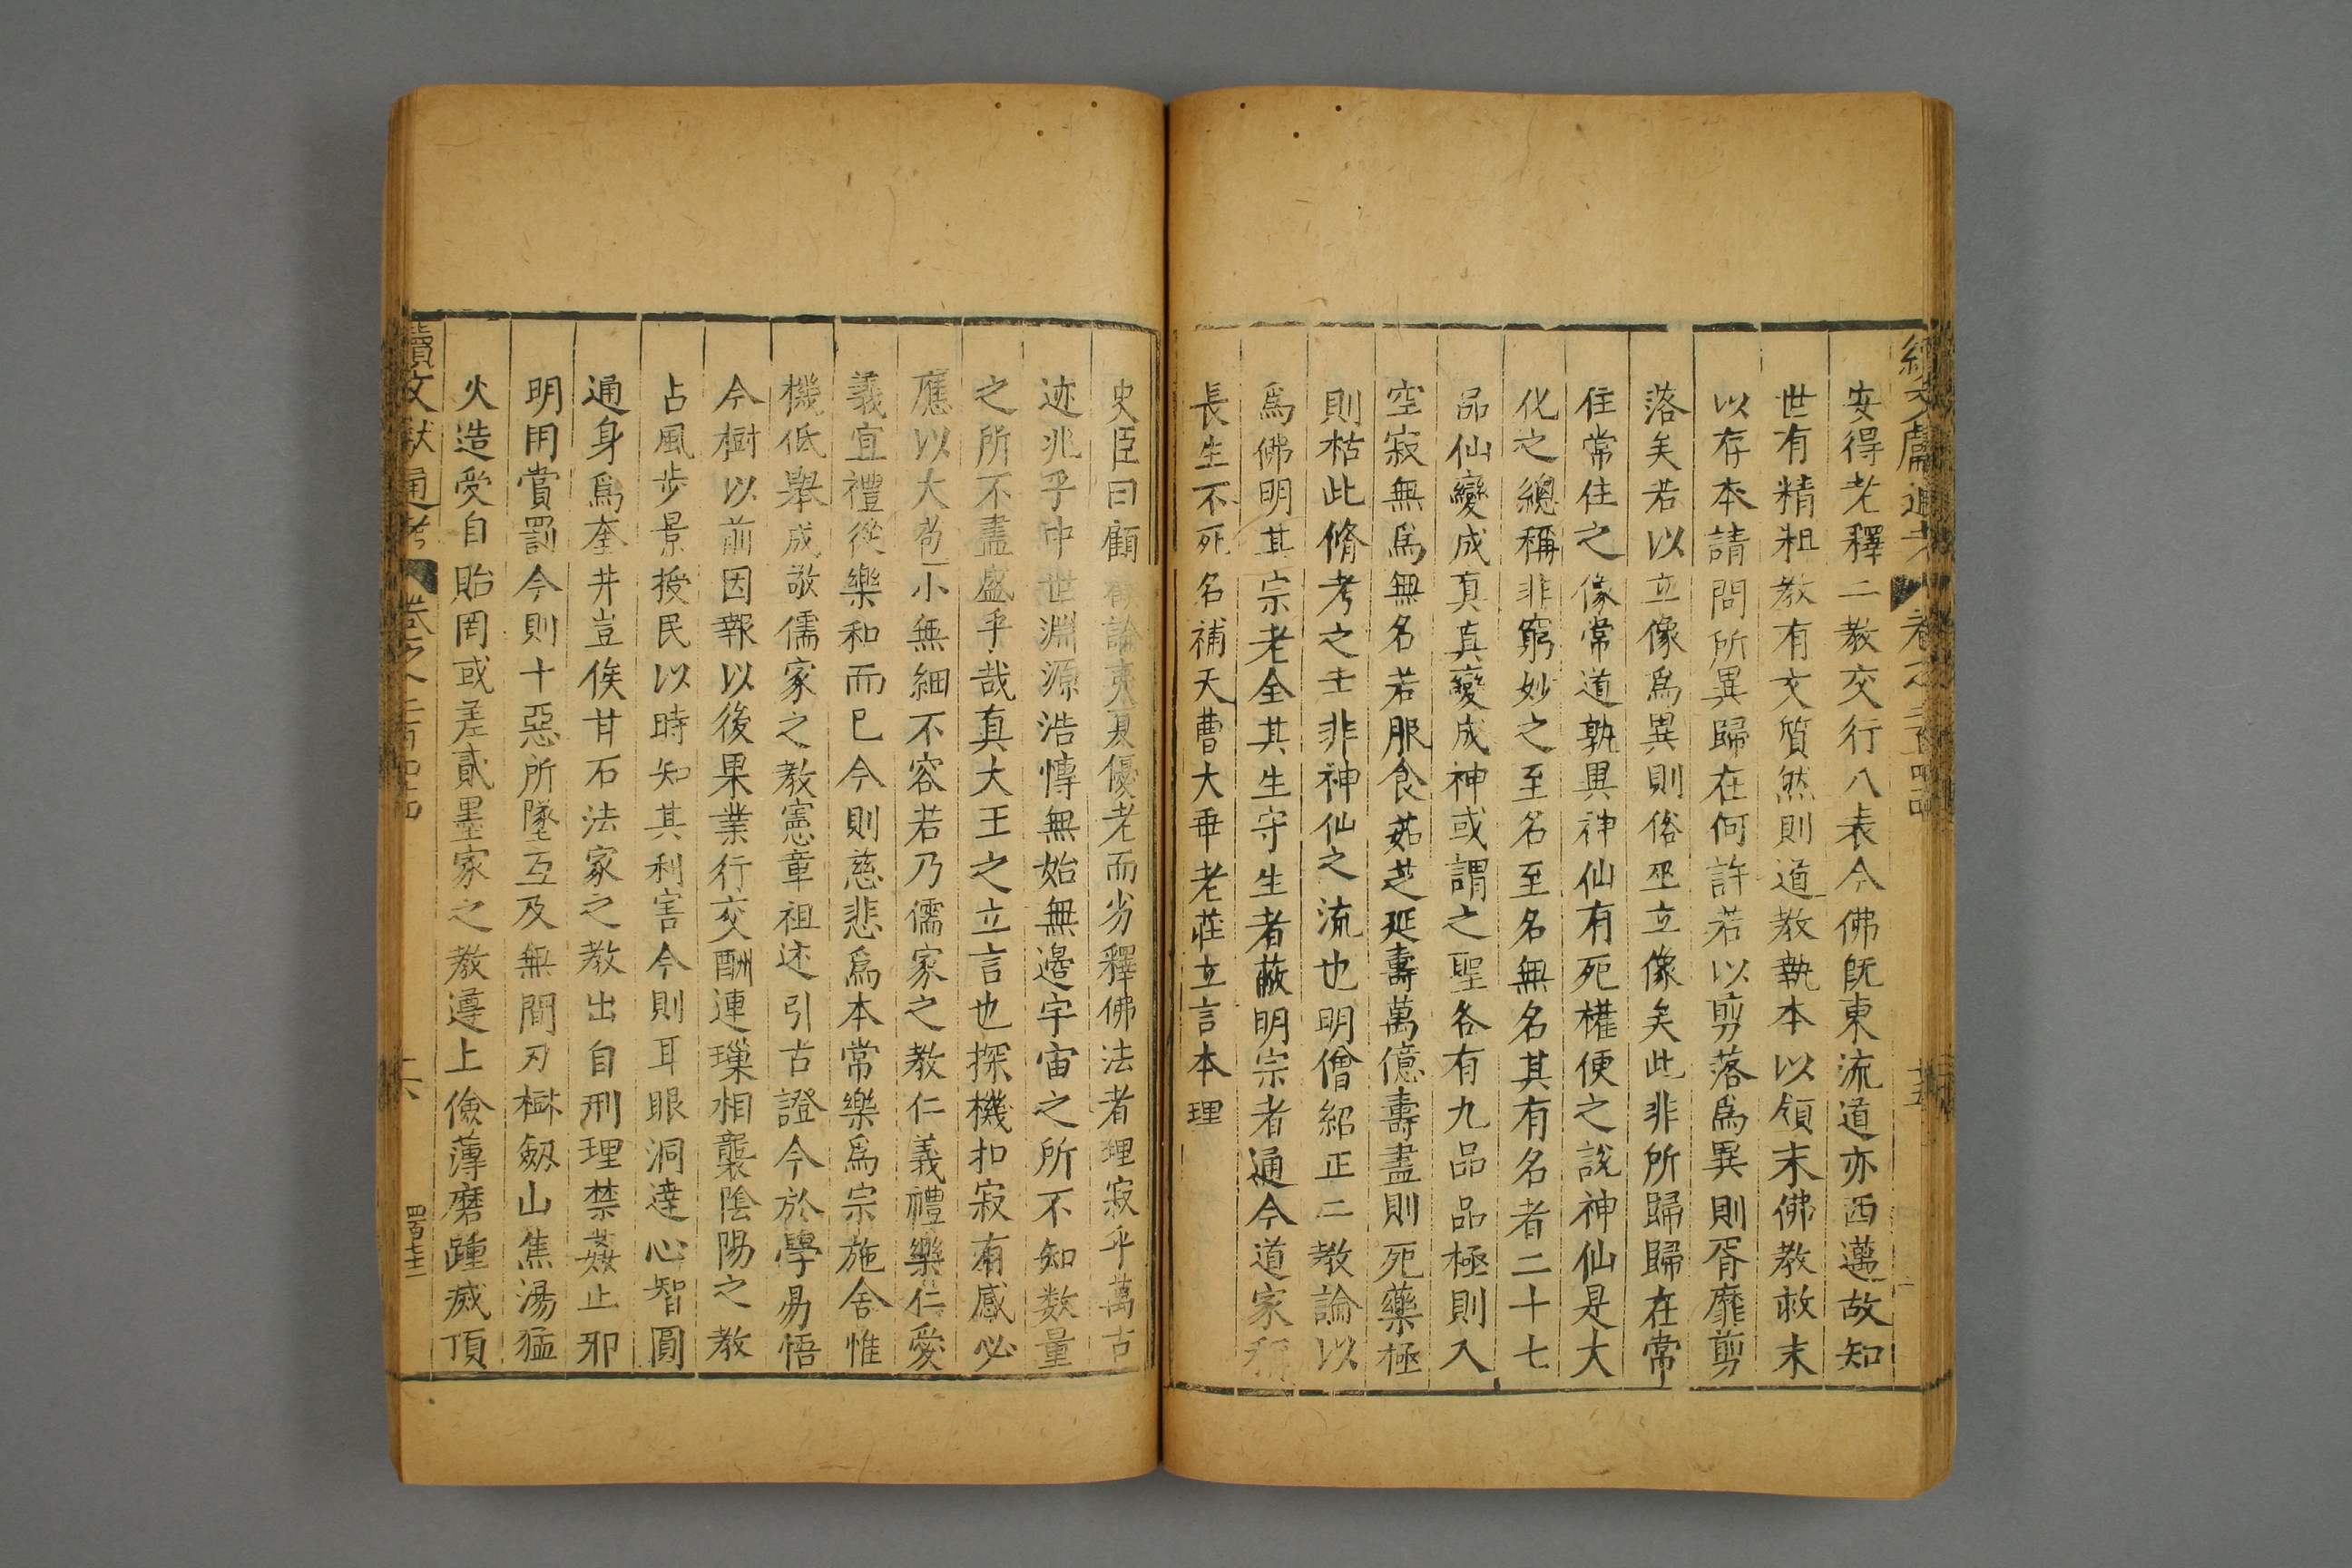 安得老釋二教交行八表今佛既東流道亦西邁故知
世有精粗教有文質然則道教執本以領末佛教救末
以存本請問所異歸在何許若以剪落爲異則胥靡剪
落矣若以立像爲異則俗巫立像矣此非所歸歸在常
住常住之像常道孰異神仙有死權便之說神仙是大
化之總稱非窮妙之至名至名無名其有名者二十七
品仙變成真真變成神或謂之聖各有九品品極則入
空寂無爲無名若服食茹芝延壽萬億壽盡則死藥極
則枯此脩考之士非神仙之流也明僧紹正二教論以
爲佛明其宗老全其生守生者蔽明宗者通今道家稱
長生不死名補天曹大乖老莊立言本理
史臣曰顧論夷夏優老而劣釋佛法者理寂乎萬古
迹兆乎中世淵源浩愽無始無邊宇宙之所不知数量
之所不盡盛乎哉真大王之立言也探機扣寂有感必
應以大苞小無細不容若乃儒家之教仁義禮樂仁愛
義宜禮從樂和而已今則慈悲爲本常樂爲宗施舍惟
機低舉成敬儒家之教憲章祖述引古證今於學易悟
今樹以前因報以後果業行交酬連璅相襲陰陽之教
占風步景授民以時知其利害今則耳眼洞達心智圓
通身爲奎井豈俟甘石法家之教出自刑理禁姦止邪
明用賞罰今則十惡所墜五及無間刃樹劔山焦湯猛
火造受自貽罔或差貳墨家之教遵上儉薄磨踵滅頂
續文獻通考 卷之二百四十四 十六 四百七十二